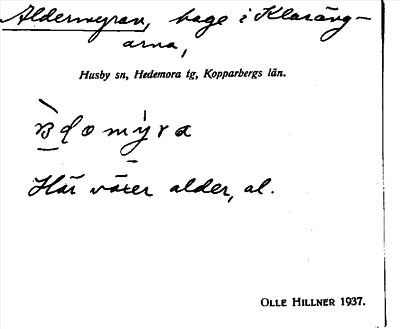 Aldermyran, hage i Klasäng-
arna,
Husby sn, Hedemora tg, Kopparbergs län.
Här växer alder, al.
OLLE HILLNER 1937.